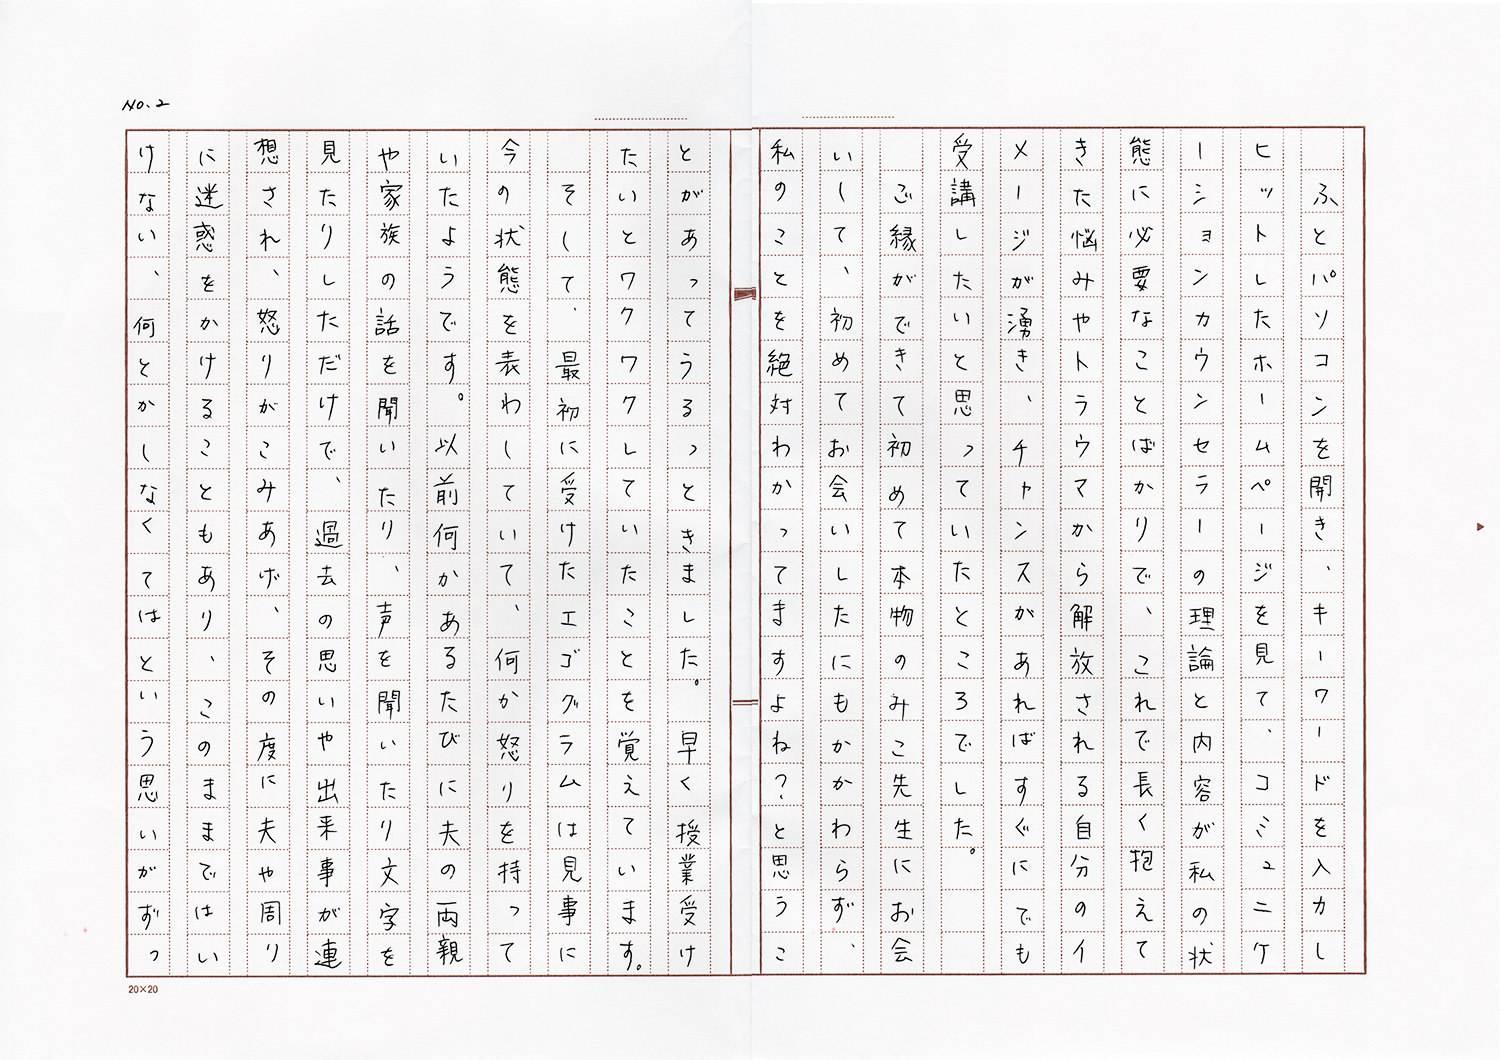 No.2
　ふとパソコンを開き、キーワードを入力し
ヒットしたホームページを見て、コミュニケ
ーションカウンセラーの理論と内容が私の状
態に必要なことばかりで、これで長く抱えて
きた悩みやトラウマから解放される自分のイ
メージが湧き、チャンスがあればすぐにでも
受講したいと思っていたところでした。
　ご縁ができて初めて本物のみこ先生にお会
いして、初めてお会いしたにもかかわらず、
私のことを絶対わかってますよね？と思うこ
とがあってうるっときました。早く授業受け
たいとワクワクしていたことを覚えています。
　そして、最初に受けたエゴグラムは見事に
今の状態を表わしていて、何か怒りを持って
いたようです。以前何かあるたびに夫の両親
や家族の話を聞いたり、声を聞いたり文字を
見たりしただけで、過去の思いや出来事が連
想され、怒りがこみあげ、その度に夫や周り
に迷惑をかけることもあり、このままではい
けない、何とかしなくてはという思いがずっ
20×20